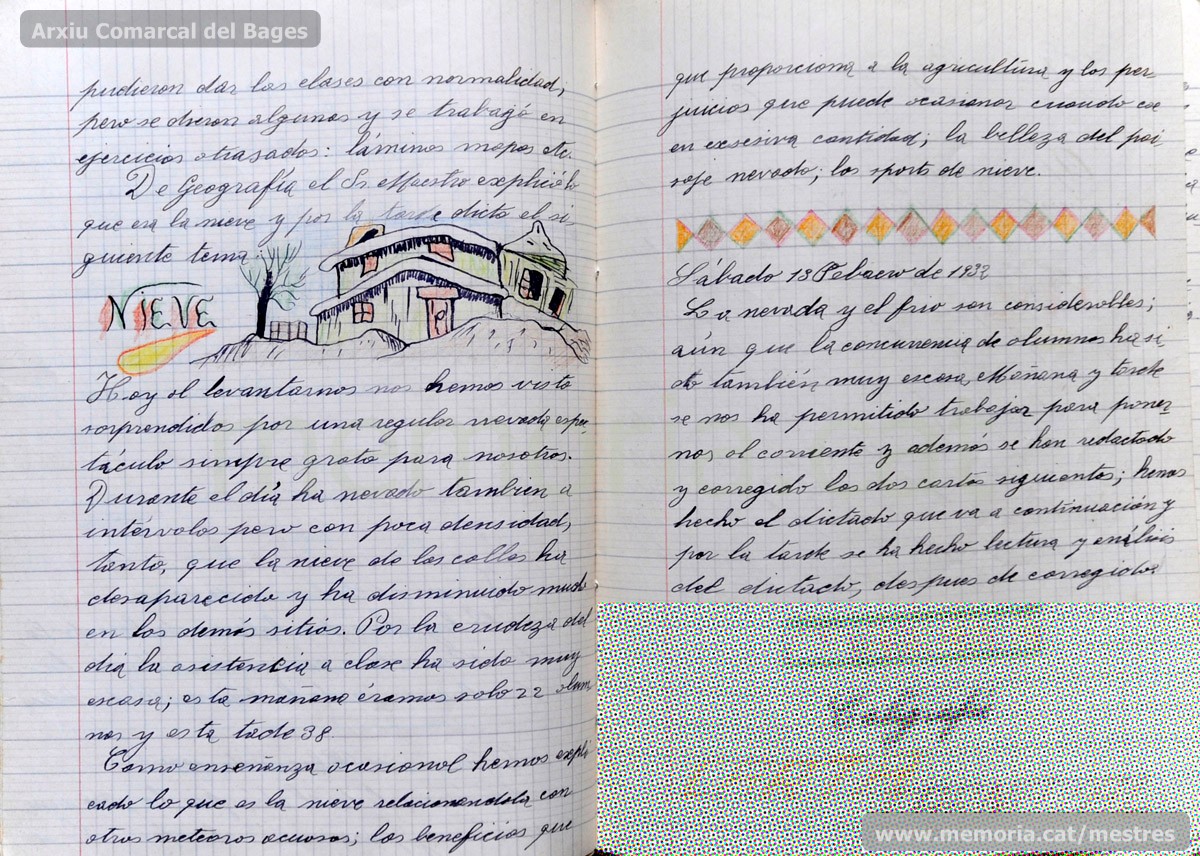 Arxiu Comarcal del Bages
pudieron dar las clases con normalidad,
pero se dieron algunas y se trabagó en
ejercicios atrasados: láminas mapas etc.
De Geografía el Sr. Maestro explicó lo
que era la nieve y por la tarde dictó el si
guiente tema
NIEVE
Hoy al levantarnos nos hemos visto
sorprendidos por una regular nevada espec
táculo simpre grato para nosotros.
Durante el día ha nevado tambien a
intérvalos pero con poca densidad,
tanto, que la nieve de las calles ha
desaparecido y ha disminuido mucho
en los demás sitios. Por la crudeza del
día la asistencia a clase ha sido muy
escasa; esta mañana éramos solo 22 alum
nos y esta tade 38
Como enseñanza ocasional hemos expli
cado lo que es la nieve relacionandola con
otros meteoros acuosos; los beneficios que
que proporciona a la agricultura y los per
juicios que puede ocasionar cuando cae
en exsesiva cantidad; la belleza del pai
saje nevado; los sports de nieve.
Sábado 13 Febrero de 1932
La nevada y el frio son considerables;
aún que la concurrencia de alumnos ha si
do también muy escasa. Mañana y tarde
se nos ha permitido trabajar para poner
nos al corriente y además se han redactado
y corregido las dos cartas siguientes; hemos
hecho el dictado que va a continuación y
por la tarde se ha hecho lectura y análisis
del dictado, despues de corregido
www.memoria.cat/mestres